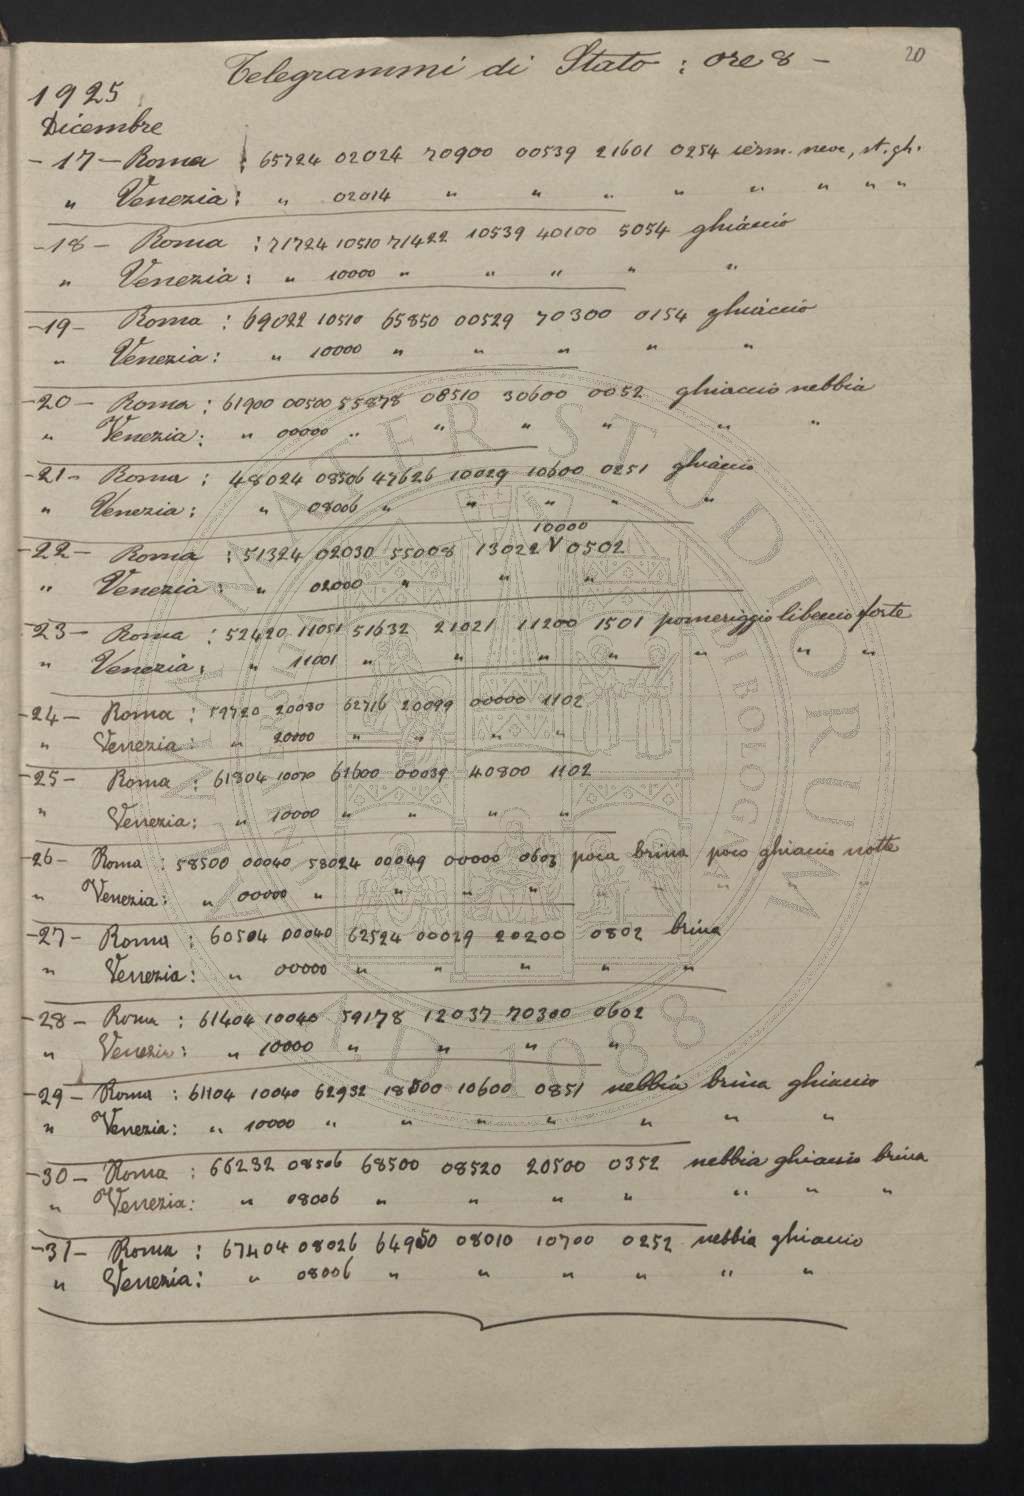 20
Telegrammi di Stato : ore 8 -
1925
Dicembre
- 17 - Roma : 65724 02024 70900 00539 21601 0254 neve, st. gh.
" Venezia : " 02014 " " " " " " " "
- 18 - Roma : 71724 10510 71422 10539 40100 5054 ghiaccio
" Venezia : " 10000 " " " " "
- 19 - Roma : 69022 10510 65850 00529 70300 0154 ghiaccio
" Venezia : " 10000 " " " " "
- 20 - Roma : 61900 00500 55878 08510 30600 0052 ghiaccio nebbia
" Venezia : " 00000 " " " " " "
- 21 - Roma : 48024 08506 47626 10029 10600 0251 ghiaccio
" Venezia : " 08006 " " " " "
10000
- 22 - Roma : 51324 02030 55008 13022 V 0502
" Venezia : " 02000 " " "
- 23 - Roma : 52420 11051 51632 21021 11200 1501 pomeriggio libeccio forte
" Venezia : " 11001 " " " " " " "
- 24 - Roma : 59720 20080 62716 20099 00000 1102
" Venezia : " 20000 " " " "
- 25 - Roma : 61804 61600 00039 40800 1102
" Venezia : " 10000 " " " "
- 26 - Roma : 58500 00040 58024 00049 00000 0603 poca brina poco ghiaccio notte
" Venezia : " 00000 " " " " " " " " "
- 27 - Roma : 60504 00040 62524 00029 20200 0802 brina
" Venezia : " 00000 " " " " "
- 28 - Roma : 61404 10040 59178 12037 70300 0602
" Venezia : " 10000 " " " "
- 29 - Roma : 61104 10040 62932 18500 10600 0851 nebbia brina ghiaccio
" Venezia : " 10000 " " " " " " "
- 30 - Roma : 66232 08506 68500 08520 20500 0352 nebbia ghiaccio brina
" Venezia : " 08006 " " " " " " "
- 31 - Roma : 67404 08026 64950 08010 10700 0252 nebbia ghiaccio
" Venezia : " 08006 " " " " " "
ALMA MATER STUDIORUM
A.D. 1088